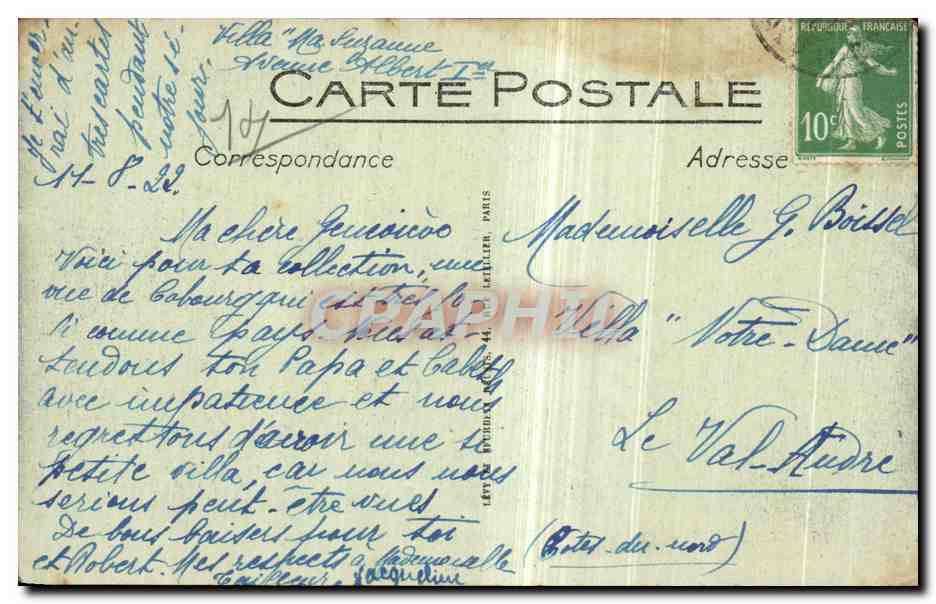 Je t'enver-
rai d'au-
tres cartes
pendant
notre sé-
jour.
Villa "Ma Suzanne
Avenue Albert Ier
14
CARTE POSTALE
Correspondance
Adresse
RÉPUBLIQUE FRANÇAISE
10c
POSTES
11-8-22.
Ma chère Geneviève
Voici pour ta collection, une
vue de Cabourg qui est très jo-
li comme pays. Nous at-
tendons ton Papa et
avec impatience et nous
regrettons d'avoir une si
petite villa, car nous nous
serions peut-être vues
De bons baisers pour toi
et Robert. Mes respects à Mademoiselle
Tailleur. Jacqueline
LÉVY ET NEURDEIN RÉUNIS, 44, RUE LETELLIER, PARIS
Mademoiselle G. Boissel
Villa "Notre-Dame"
Le Val-André
(Côtes-du-nord)
CPAPHIL